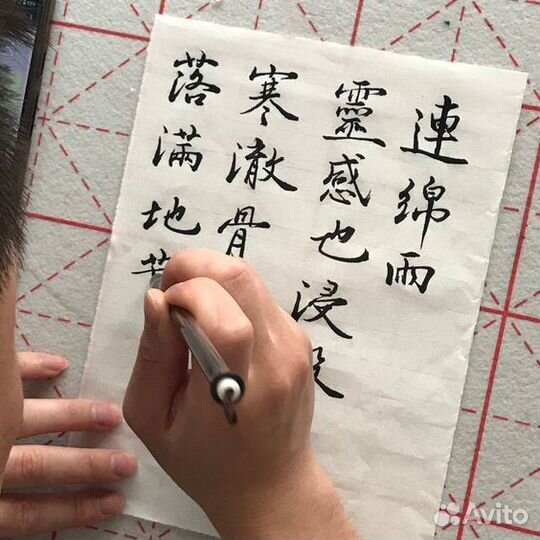 連綿雨
靈感也浸
寒澈骨
落滿地
Avito